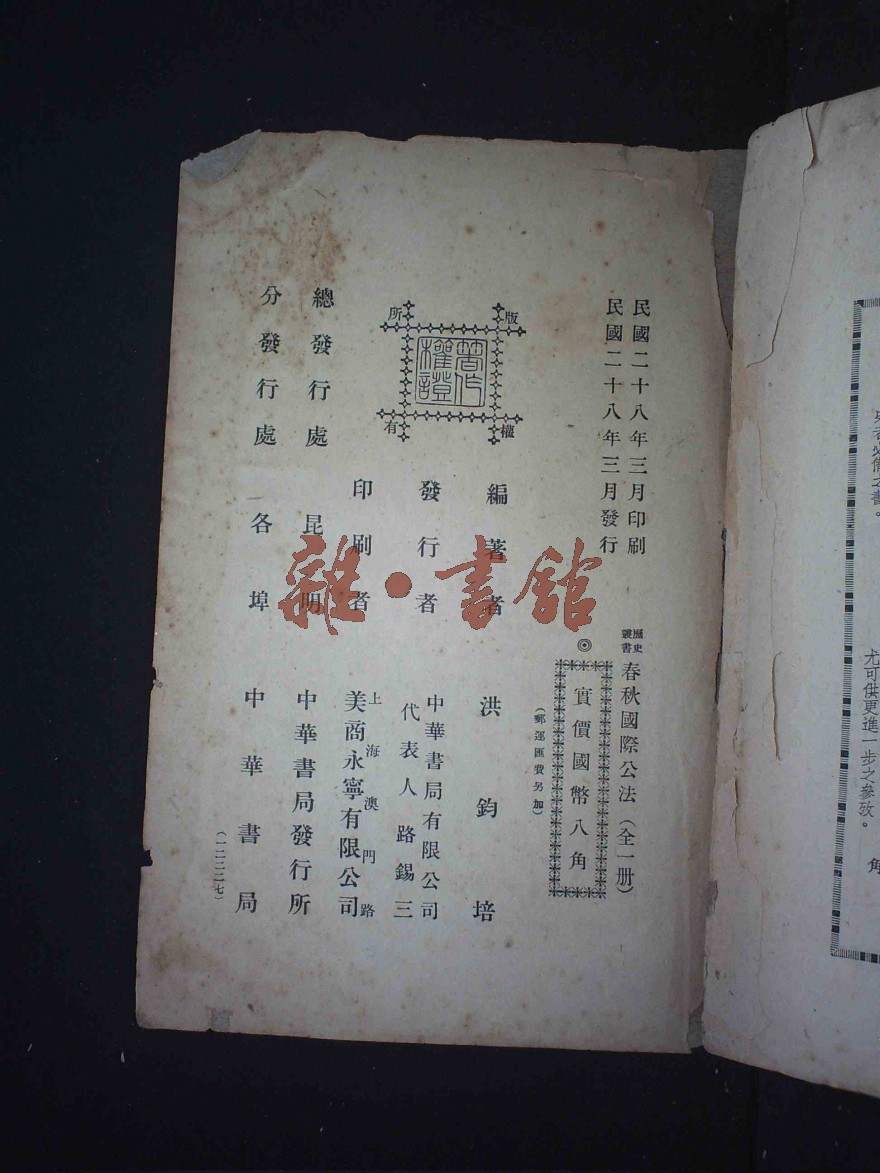 民國二十八年三月印刷
民國二十八年三月發行
歷史叢書
春秋國際公法（全一册）
◎
實價國幣八角
（郵運匯費另加）
版權所有
著作權證
編著者 洪鈞培
發行者 中華書局有限公司
代表人 路錫三
印刷者 上海澳門路
美商永寧有限公司
總發行處 昆明 中華書局發行所
分發行處 各埠 中華書局
（一二二二七）
雜·書館
尤可供更進一步之參攷。
角